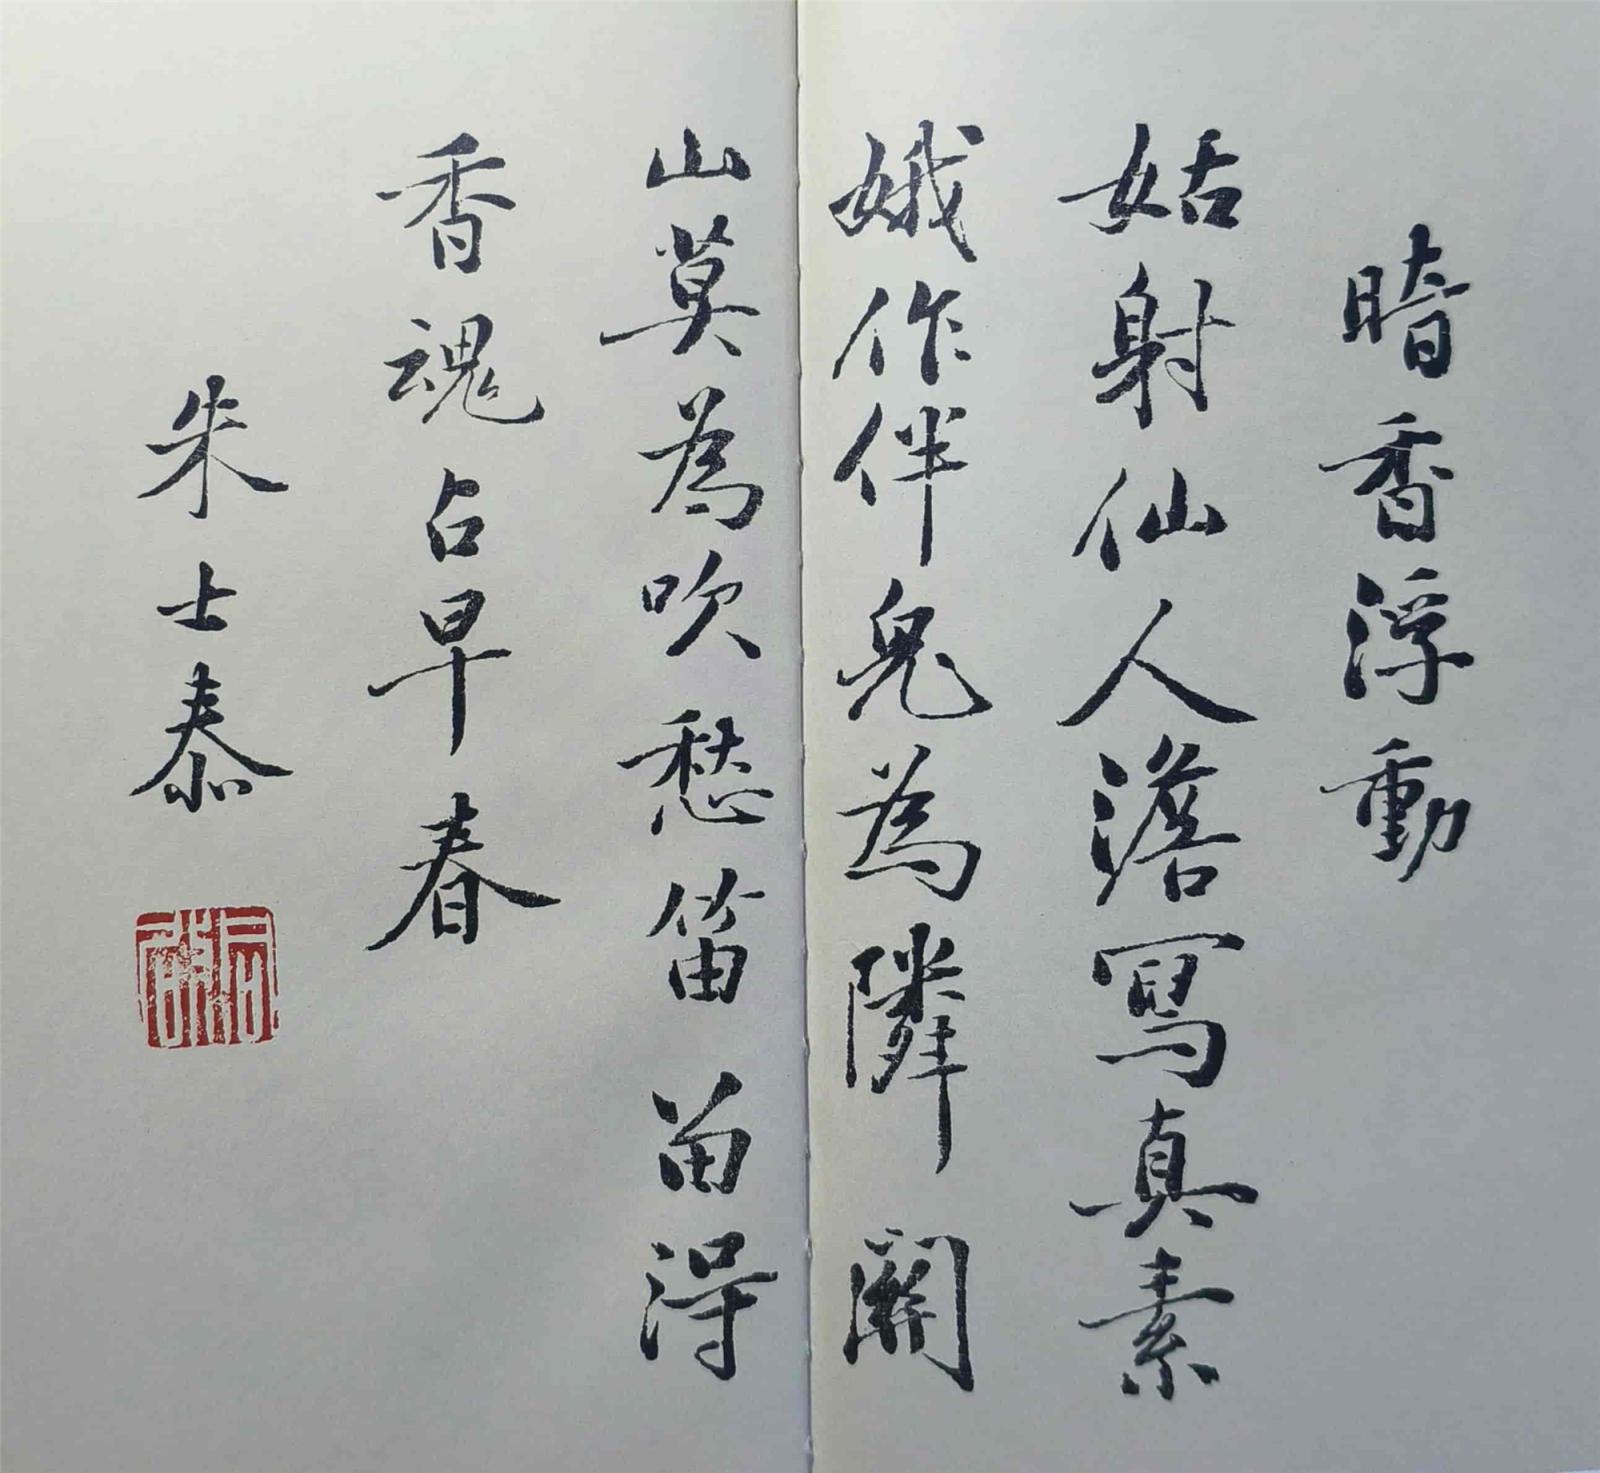 暗香浮動
姑射仙人澹寫真素
娥作伴皃為隣關
山莫為吹愁笛留得
香魂占早春
朱士泰